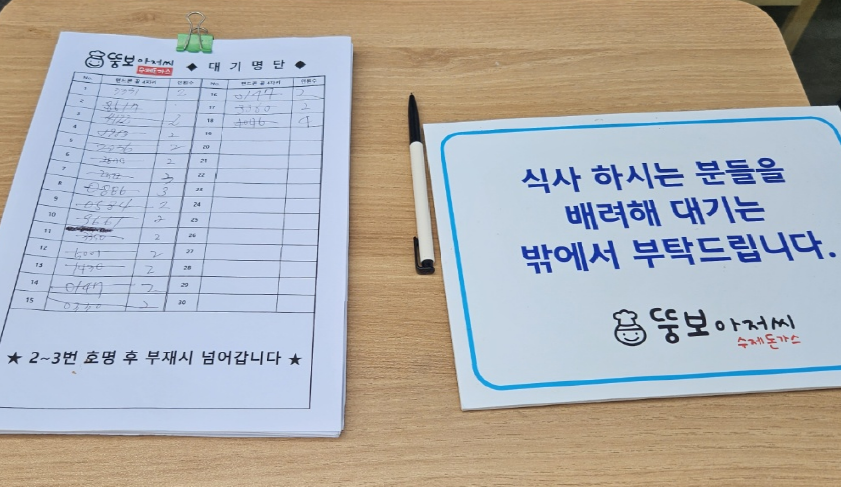 뚱보아저씨
수제돈가스
◆ 대기명단 ◆
No. 핸드폰 끝 4자리 인원수 No. 핸드폰 끝 4자리 인원수
1 2 16 0147 2
2 8617 17 2
3 18 4
4 2 19
5 2 20
6 2 21
7 22
8 0886 3 23
9 0584 2 24
10 9661 2 25
11 2 26
12 2 27
13 1430 2 28
14 0147 2 29
15 2 30
★ 2~3번 호명 후 부재시 넘어갑니다 ★
식사 하시는 분들을
배려해 대기는
밖에서 부탁드립니다.
뚱보아저씨
수제돈가스